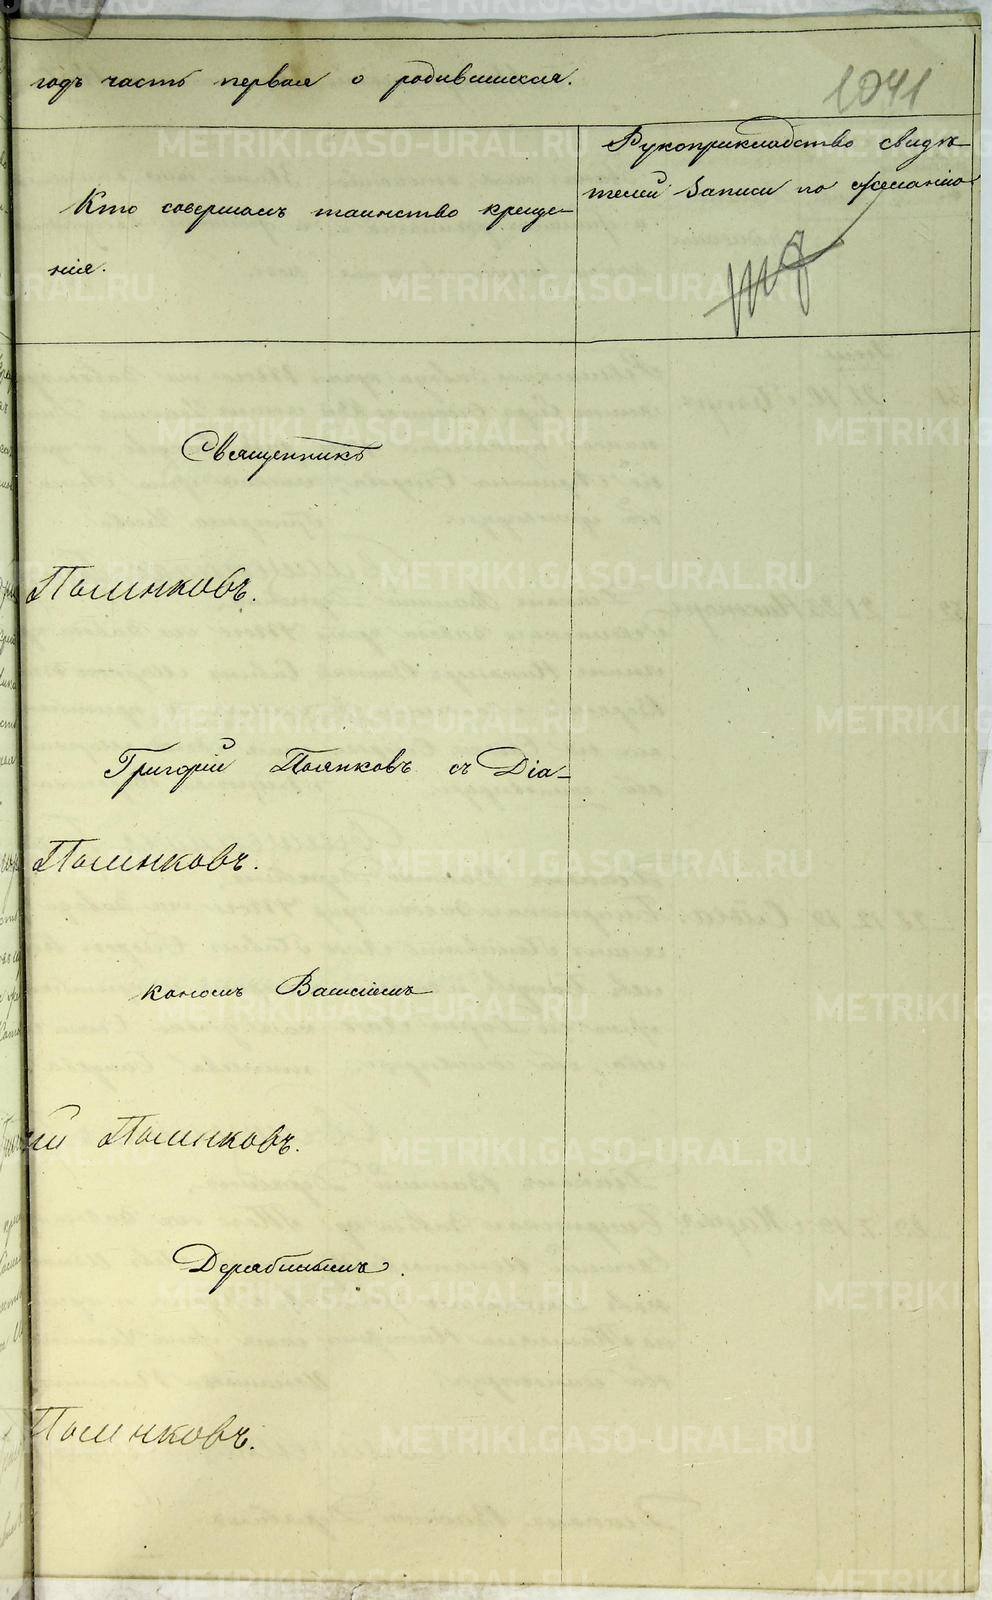 годъ часть первая о родившихся.
1041
Кто совершалъ таинство креще-
нія.
Рукоприкладство свидѣ-
телей записи по желанію
Священникъ
Полянковъ.
Григорій Полянковъ съ Діа-
Полянковъ.
кономъ Василіемъ
ій Полянковъ.
Дерябинымъ.
Полянковъ.
METRIKI.GASO-URAL.RU